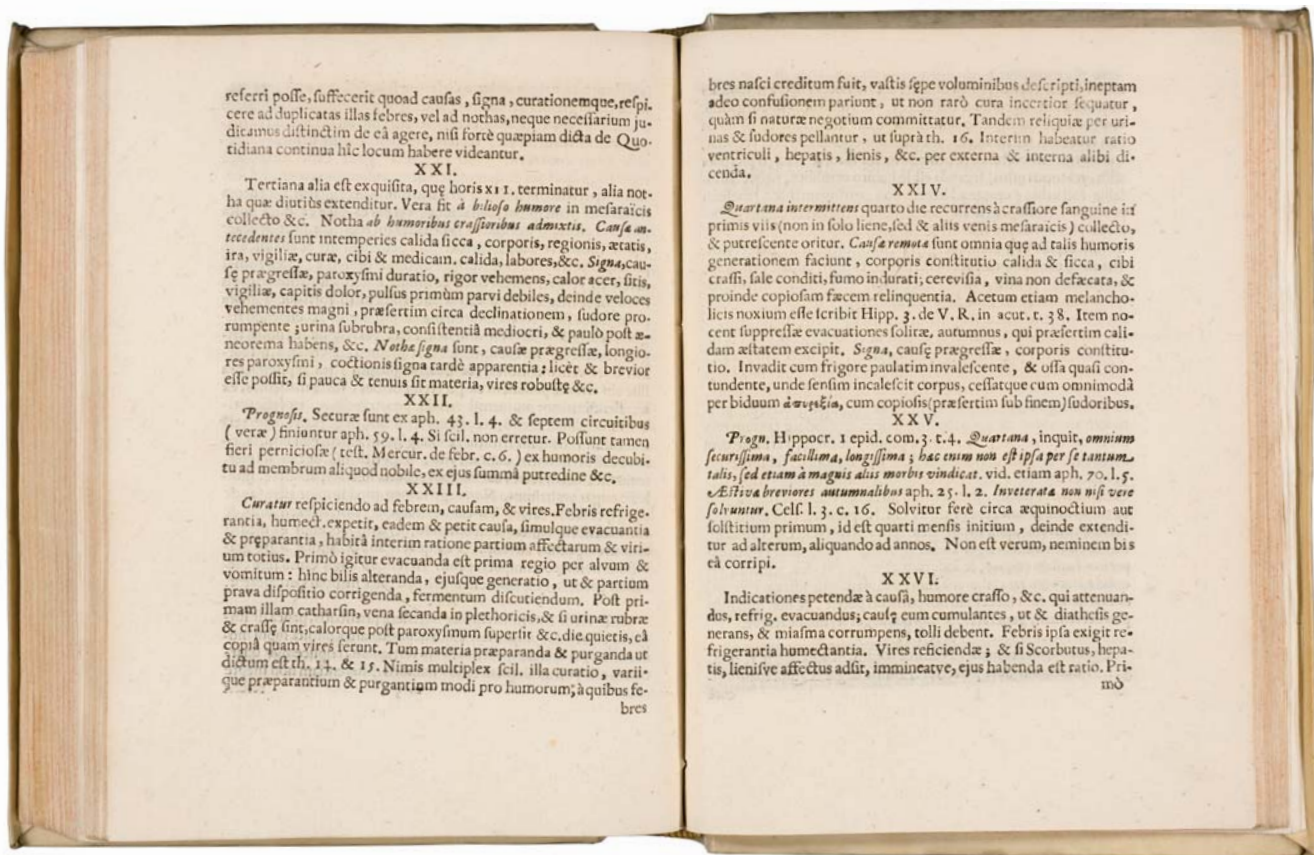 referri posse, suffecerit quoad causas, signa, curationemque, respi-
cere ad duplicatas illas febres, vel ad nothas, neque necessarium ju-
dicamus distinctim de eâ agere, nisi fortè quæpiam dicta de Quo-
tidiana continua hîc locum habere videantur.
XXI.
Tertiana alia est exquisita, quę horis XII. terminatur, alia not-
ha quæ diutiùs extenditur. Vera fit à bilioso humore in mesaraïcis
collecto &c. Notha ab humoribus crassioribus admixtis. Causæ an-
tecedentes sunt intemperies calida sicca, corporis, regionis, ætatis,
ira, vigiliæ, curæ, cibi & medicam. calida, labores, &c. Signa, cau-
sę prægressæ, paroxysmi duratio, rigor vehemens, calor acer, sitis,
vigiliæ, capitis dolor, pulsus primùm parvi debiles, deinde veloces
vehementes magni, præsertim circa declinationem, sudore pro-
rumpente; urina subrubra, consistentiâ mediocri, & paulò post æ-
neorema habens, &c. Nothæ signa sunt, causæ prægressæ, longio-
res paroxysmi, coctionis signa tardè apparentia; licèt & brevior
esse possit, si pauca & tenuis sit materia, vires robustę &c.
XXII.
Prognosis. Securæ sunt ex aph. 43. l. 4. & septem circuitibus
(veræ) finiuntur aph. 59. l. 4. Si scil. non erretur. Possunt tamen
fieri perniciosæ (test. Mercur. de febr. c. 6.) ex humoris decubi-
tu ad membrum aliquod nobile, ex ejus summâ putredine &c.
XXIII.
Curatur respiciendo ad febrem, causam, & vires. Febris refrige-
rantia, humect. expetit, eadem & petit causa, simulque evacuantia
& pręparantia, habitâ interim ratione partium affectarum & viri-
um totius. Primò igitur evacuanda est prima regio per alvum &
vomitum: hinc bilis alteranda, ejusque generatio, ut & partium
prava dispositio corrigenda, fermentum discutiendum. Post pri-
mam illam catharsin, vena secanda in plethoricis, & si urinæ rubræ
& crassę sint, calorque post paroxysmum supersit &c. die quietis, eâ
copiâ quam vires ferunt. Tum materia præparanda & purganda ut
dictum est th. 14. & 15. Nimis multiplex scil. illa curatio, varii-
que præparantium & purgantium modi pro humorum, à quibus fe-
bres
bres nasci creditum fuit, vastis sępe voluminibus descripti, ineptam
adeo confusionem pariunt, ut non rarò cura incertior sequatur,
quàm si naturæ negotium committatur. Tandem reliquiæ per uri-
nas & sudores pellantur, ut suprà th. 16. Interim habeatur ratio
ventriculi, hepatis, lienis, &c. per externa & interna alibi di-
cenda.
XXIV.
Quartana intermittens quarto die recurrens à crassiore sanguine in
primis viis (non in solo liene, sed & aliis venis mesaraicis) collecto,
& putrescente oritur. Causæ remotæ sunt omnia quę ad talis humoris
generationem faciunt, corporis constitutio calida & sicca, cibi
crassi, sale conditi, fumo indurati; cerevisia, vina non defæcata, &
proinde copiosam fæcem relinquentia. Acetum etiam melancho-
licis noxium esse scribit Hipp. 3. de V. R. in acut. t. 38. Item no-
cent suppressæ evacuationes solitæ, autumnus, qui præsertim cali-
dam æstatem excipit. Signa, causę prægressæ, corporis constitu-
tio. Invadit cum frigore paulatim invalescente, & ossa quasi con-
tundente, unde sensim incalescit corpus, cessatque cum omnimodâ
per biduum ἀπυρεξία, cum copiosis (præsertim sub finem) sudoribus.
XXV.
Progn. Hippocr. 1 epid. com. 3. t. 4. Quartana, inquit, omnium
securissima, facillima, longissima; hæc enim non est ipsa per se tantum
talis, sed etiam à magnis aliis morbis vindicat. vid. etiam aph. 70. l. 5.
Æstivæ breviores autumnalibus aph. 25. l. 2. Inveteratæ non nisi vere
solvuntur. Cels. l. 3. c. 16. Solvitur ferè circa æquinoctium aut
solstitium primum, id est quarti mensis initium, deinde extendi-
tur ad alterum, aliquando ad annos. Non est verum, neminem bis
eâ corripi.
XXVI.
Indicationes petendæ à causâ, humore crasso, &c. qui attenuan-
dus, refrig. evacuandus; causę eum cumulantes, ut & diathesis ge-
nerans, & miasma corrumpens, tolli debent. Febris ipsa exigit re-
frigerantia humectantia. Vires reficiendæ; & si Scorbutus, hepa-
tis, lienisve affectus adsit, immineatve, ejus habenda est ratio. Pri-
mò